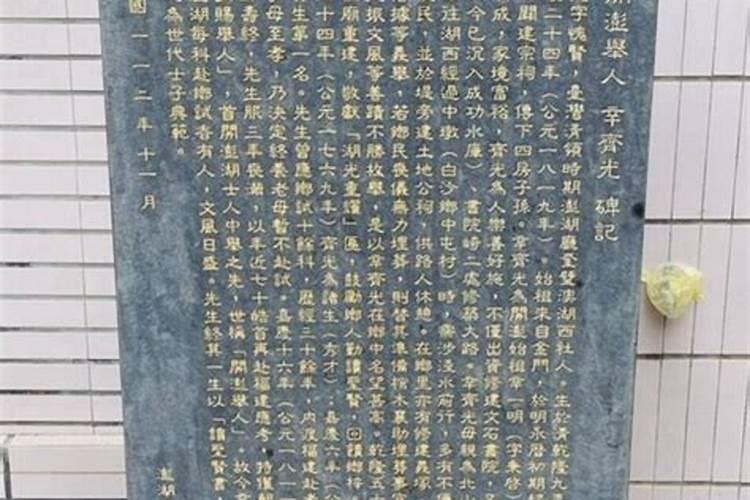 開澎舉人 辛齊光 碑記
字愧賢,臺灣清領時期澎湖廳奎璧澳湖西社人。生於清乾隆九
二十四年(公元一八一九年)。始祖來自金門,於明永曆初期
關建宗祠,傳下四房子孫。辛齊光為開澎始祖辛一明(字秉啓
成,家境富裕,齊光為人樂善好施,不僅出資修建文石書院,
今已沉入成功水庫)、書院崎二處修築大路。辛齊光母親為北山
往湖西經過中墩(白沙鄉中屯村)時,需涉淺水前行,多有不便
民,並於堤旁建土地公祠,供路人休憩。在鄉里亦有修建義塚
借據等義舉,若鄉民喪儀無力埋葬,則替其準備棺木襄助埋葬事宜
振文風等善蹟不勝枚舉,是以辛齊光在鄉中名望甚高。乾隆五十
廟重建,敬獻「湖光重耀」匾,鼓勵鄉人勤讀聖賢,回饋鄉梓
十四年(公元一七六九年)齊光為諸生(秀才),嘉慶六年(公
生第一名。先生曾應鄉試十餘科,歷經三十餘年,內渡福建赴考
母至孝,乃決定終養老母暫不赴試。嘉慶十六年(公元一八一
善終,先生服三年喪滿,以年近七十皓首再赴福建應考,特僅
賜舉人」,首開澎湖士人中舉之先,世稱「開澎舉人」。故今
湖每科赴鄉試者有人,文風日盛。先生終其一生以「讀聖賢書,
為世代士子典範。
國一一二年十一月
澎湖